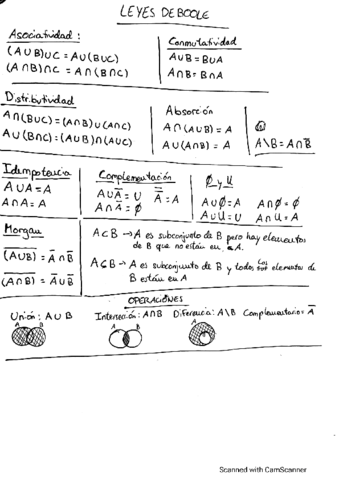 LEYES DE BOOLE
Asociatividad:
(A∪B)∪C = A∪(B∪C)
(A∩B)∩C = A∩(B∩C)
Conmutatividad
A∪B = B∪A
A∩B = B∩A
Distributividad
A∩(B∪C) = (A∩B)∪(A∩C)
A∪(B∩C) = (A∪B)∩(A∪C)
Absorción
A∩(A∪B) = A
A∪(A∩B) = A
A\B = A∩B̅
Idempotencia
A∪A = A
A∩A = A
Complementación
A∪A̅ = U
A∩A̅ = ∅
A̿ = A
∅ y U
A∪∅ = A   A∩∅ = ∅
A∪U = U   A∩U = A
Morgan
(A∪B) = A̅∩B̅
(A∩B) = A̅∪B̅
A⊂B → A es subconjuto de B pero hay elementos
de B que no están en A.
A⊆B → A es subconjunto de B y todos los elementos de
B están en A
OPERACIONES
Unión: A∪B   Intersección: A∩B   Diferencia: A\B   Complementario = A̅
A B
A B
A B
Scanned with CamScanner